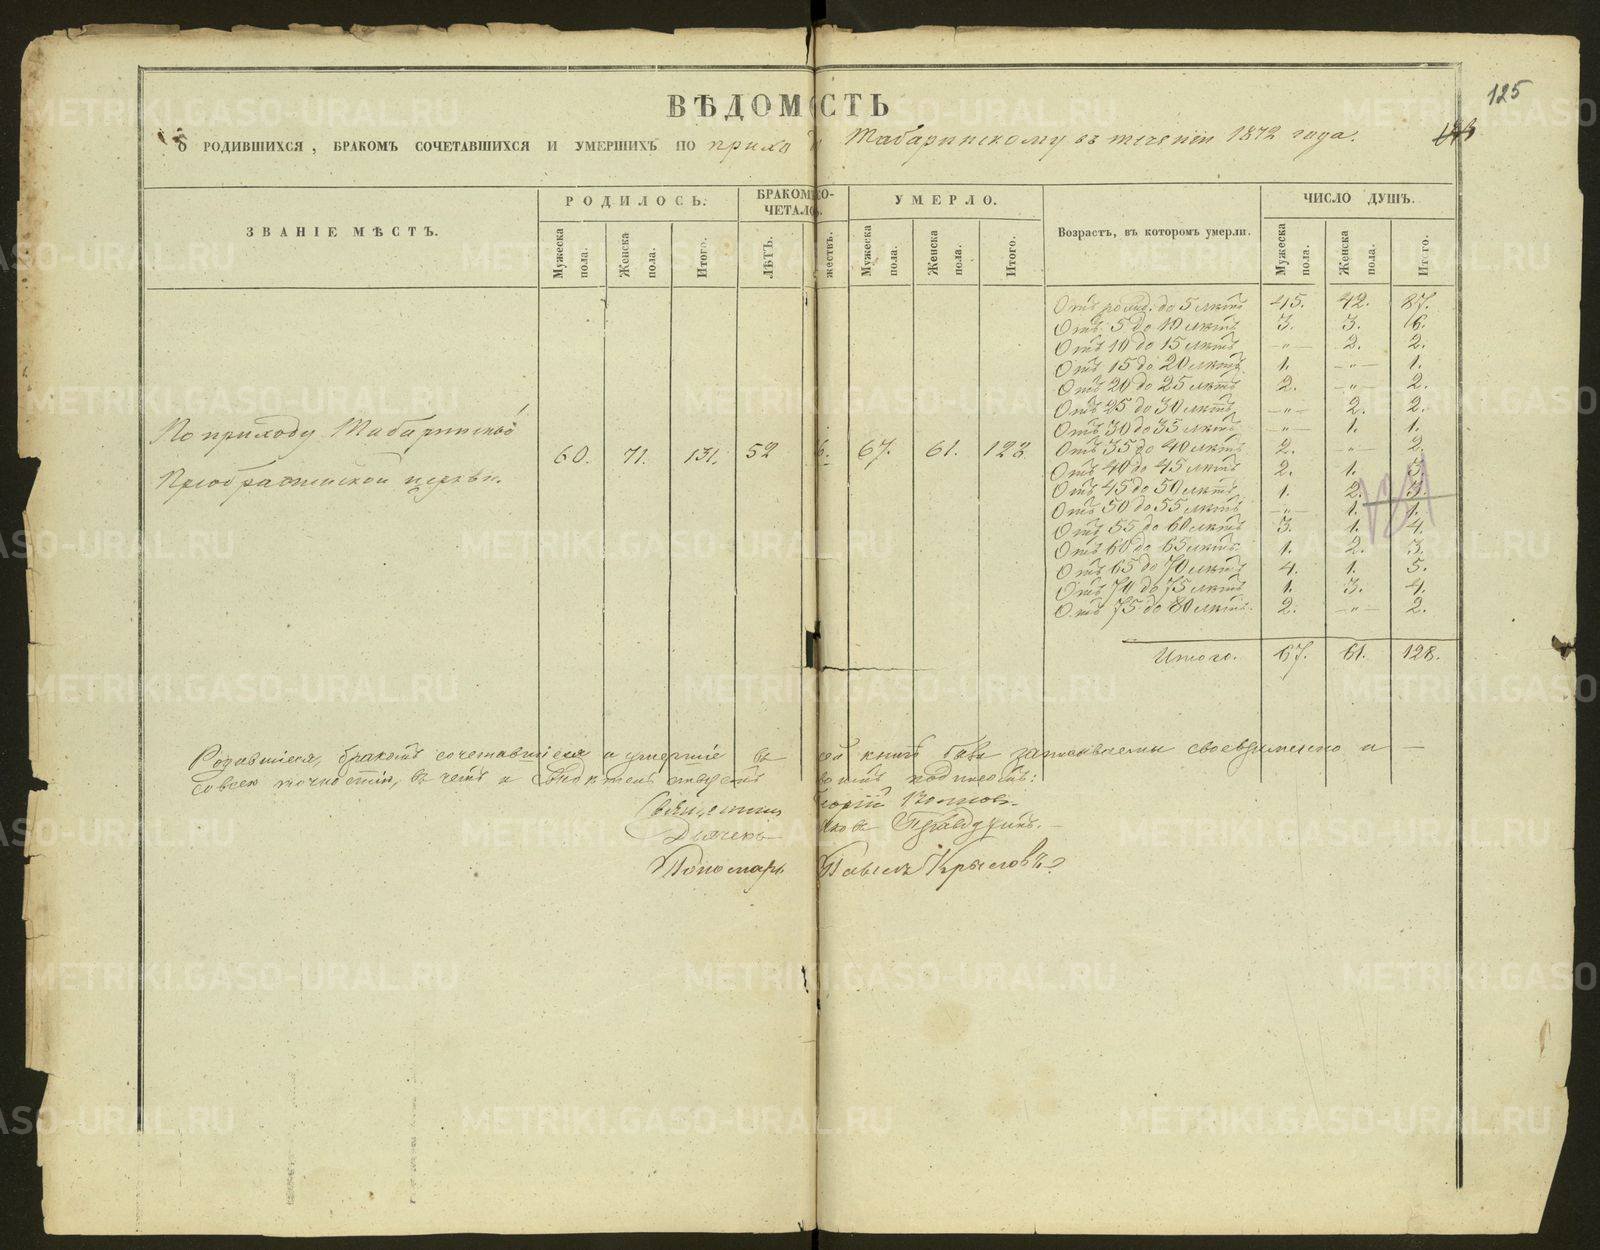 125
ВѢДОМОСТЬ
О РОДИВШИХСЯ, БРАКОМЪ СОЧЕТАВШИХСЯ И УМЕРШИХЪ ПО приходу Табаринскому въ теченіи 1872 года.
ЗВАНІЕ МѢСТЪ.
РОДИЛОСЬ.
БРАКОМЪ СО-
ЧЕТАЛОСЬ.
УМЕРЛО.
Возрастъ, въ которомъ умерли.
ЧИСЛО ДУШЪ.
Мужеска пола. Женска пола. Итого. ЛѢТЪ. жествъ. Мужеска пола. Женска пола. Итого. Мужеска пола. Женска пола. Итого.
Отъ рожд. до 5 лѣтъ 45. 42. 87.
Отъ 5 до 10 лѣтъ 3. 3. 6.
Отъ 10 до 15 лѣтъ —„— 2. 2.
Отъ 15 до 20 лѣтъ 1. —„— 1.
Отъ 20 до 25 лѣтъ 2. —„— 2.
Отъ 25 до 30 лѣтъ —„— 2. 2.
Отъ 30 до 35 лѣтъ —„— 1. 1.
Отъ 35 до 40 лѣтъ 2. —„— 2.
Отъ 40 до 45 лѣтъ 2. 1. 3.
Отъ 45 до 50 лѣтъ 1. 2. 3.
Отъ 50 до 55 лѣтъ —„— 1. 1.
Отъ 55 до 60 лѣтъ 3. 1. 4.
Отъ 60 до 65 лѣтъ 1. 2. 3.
Отъ 65 до 70 лѣтъ 4. 1. 5.
Отъ 70 до 75 лѣтъ 1. 3. 4.
Отъ 75 до 80 лѣтъ 2. —„— 2.
Итого. 67. 61. 128.
По приходу Табаринской
Преображенской церкви. 60. 71. 131. 52 6. 67. 61. 128
Родившіеся, бракомъ сочетавшіеся и умершіе въ сей книгѣ записываемы своевременно и —
со всею точностію, въ чемъ и подписомъ:
Священникъ Георгій
Дьячекъ Яковъ
Пономарь Павелъ Крыловъ
METRIKI.GASO-URAL.RU